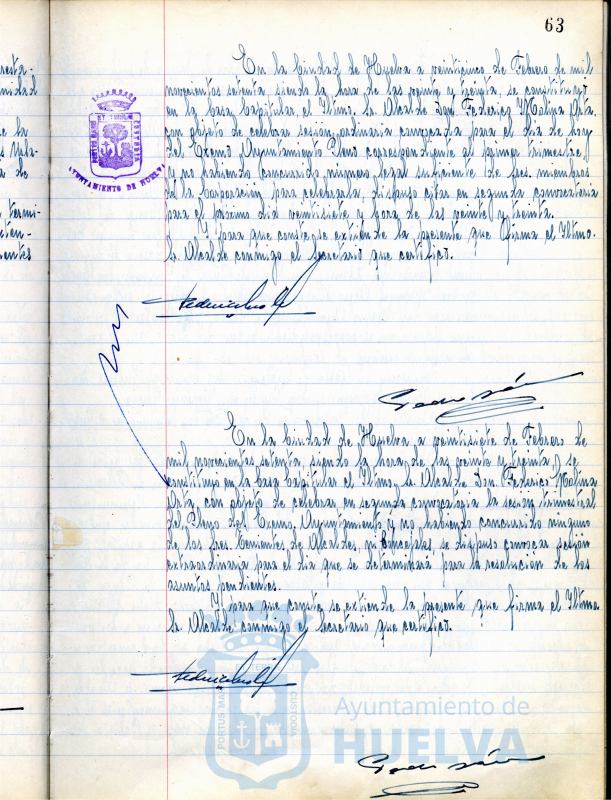 63
En la Ciudad de Huelva a veinticinco de Febrero de mil
novecientos setenta, siendo la hora de las veinte y treinta, se constituyó
en la Casa Capitular el Iltmo. Sr. Alcalde Don Federico Molina Orta,
con objeto de celebrar sesión ordinaria convocada para el día de hoy
del Excmo. Ayuntamiento Pleno correspondiente al primer trimestre,
y no habiendo concurrido número legal suficiente de Sres. miembros
de la Corporación para celebrarla, dispuso citar en segunda convocatoria
para el próximo día veintisiete y hora de las veinte y treinta.
Y para que conste, se extiende la presente que firma el Iltmo.
Sr. Alcalde conmigo el Secretario que certifico.
En la Ciudad de Huelva, a veintisiete de Febrero de
mil novecientos setenta, siendo la hora de las veinte y treinta, se
constituyó en la Casa Capitular el Iltmo. Sr. Alcalde Don Federico Molina
Orta, con objeto de celebrar en segunda convocatoria la sesión trimestral
del Pleno del Excmo. Ayuntamiento y no habiendo concurrido ninguno
de los Sres. Tenientes de Alcalde, ni Concejales, se dispuso convocar sesión
extraordinaria para el día que se determinará para la resolución de los
asuntos pendientes.
Y para que conste, se extiende la presente que firma el Iltmo.
Sr. Alcalde conmigo el Secretario que certifico.
AYUNTAMIENTO DE HUELVA
PORTUS MARIS
CUSTODIA
Ayuntamiento de
HUELVA